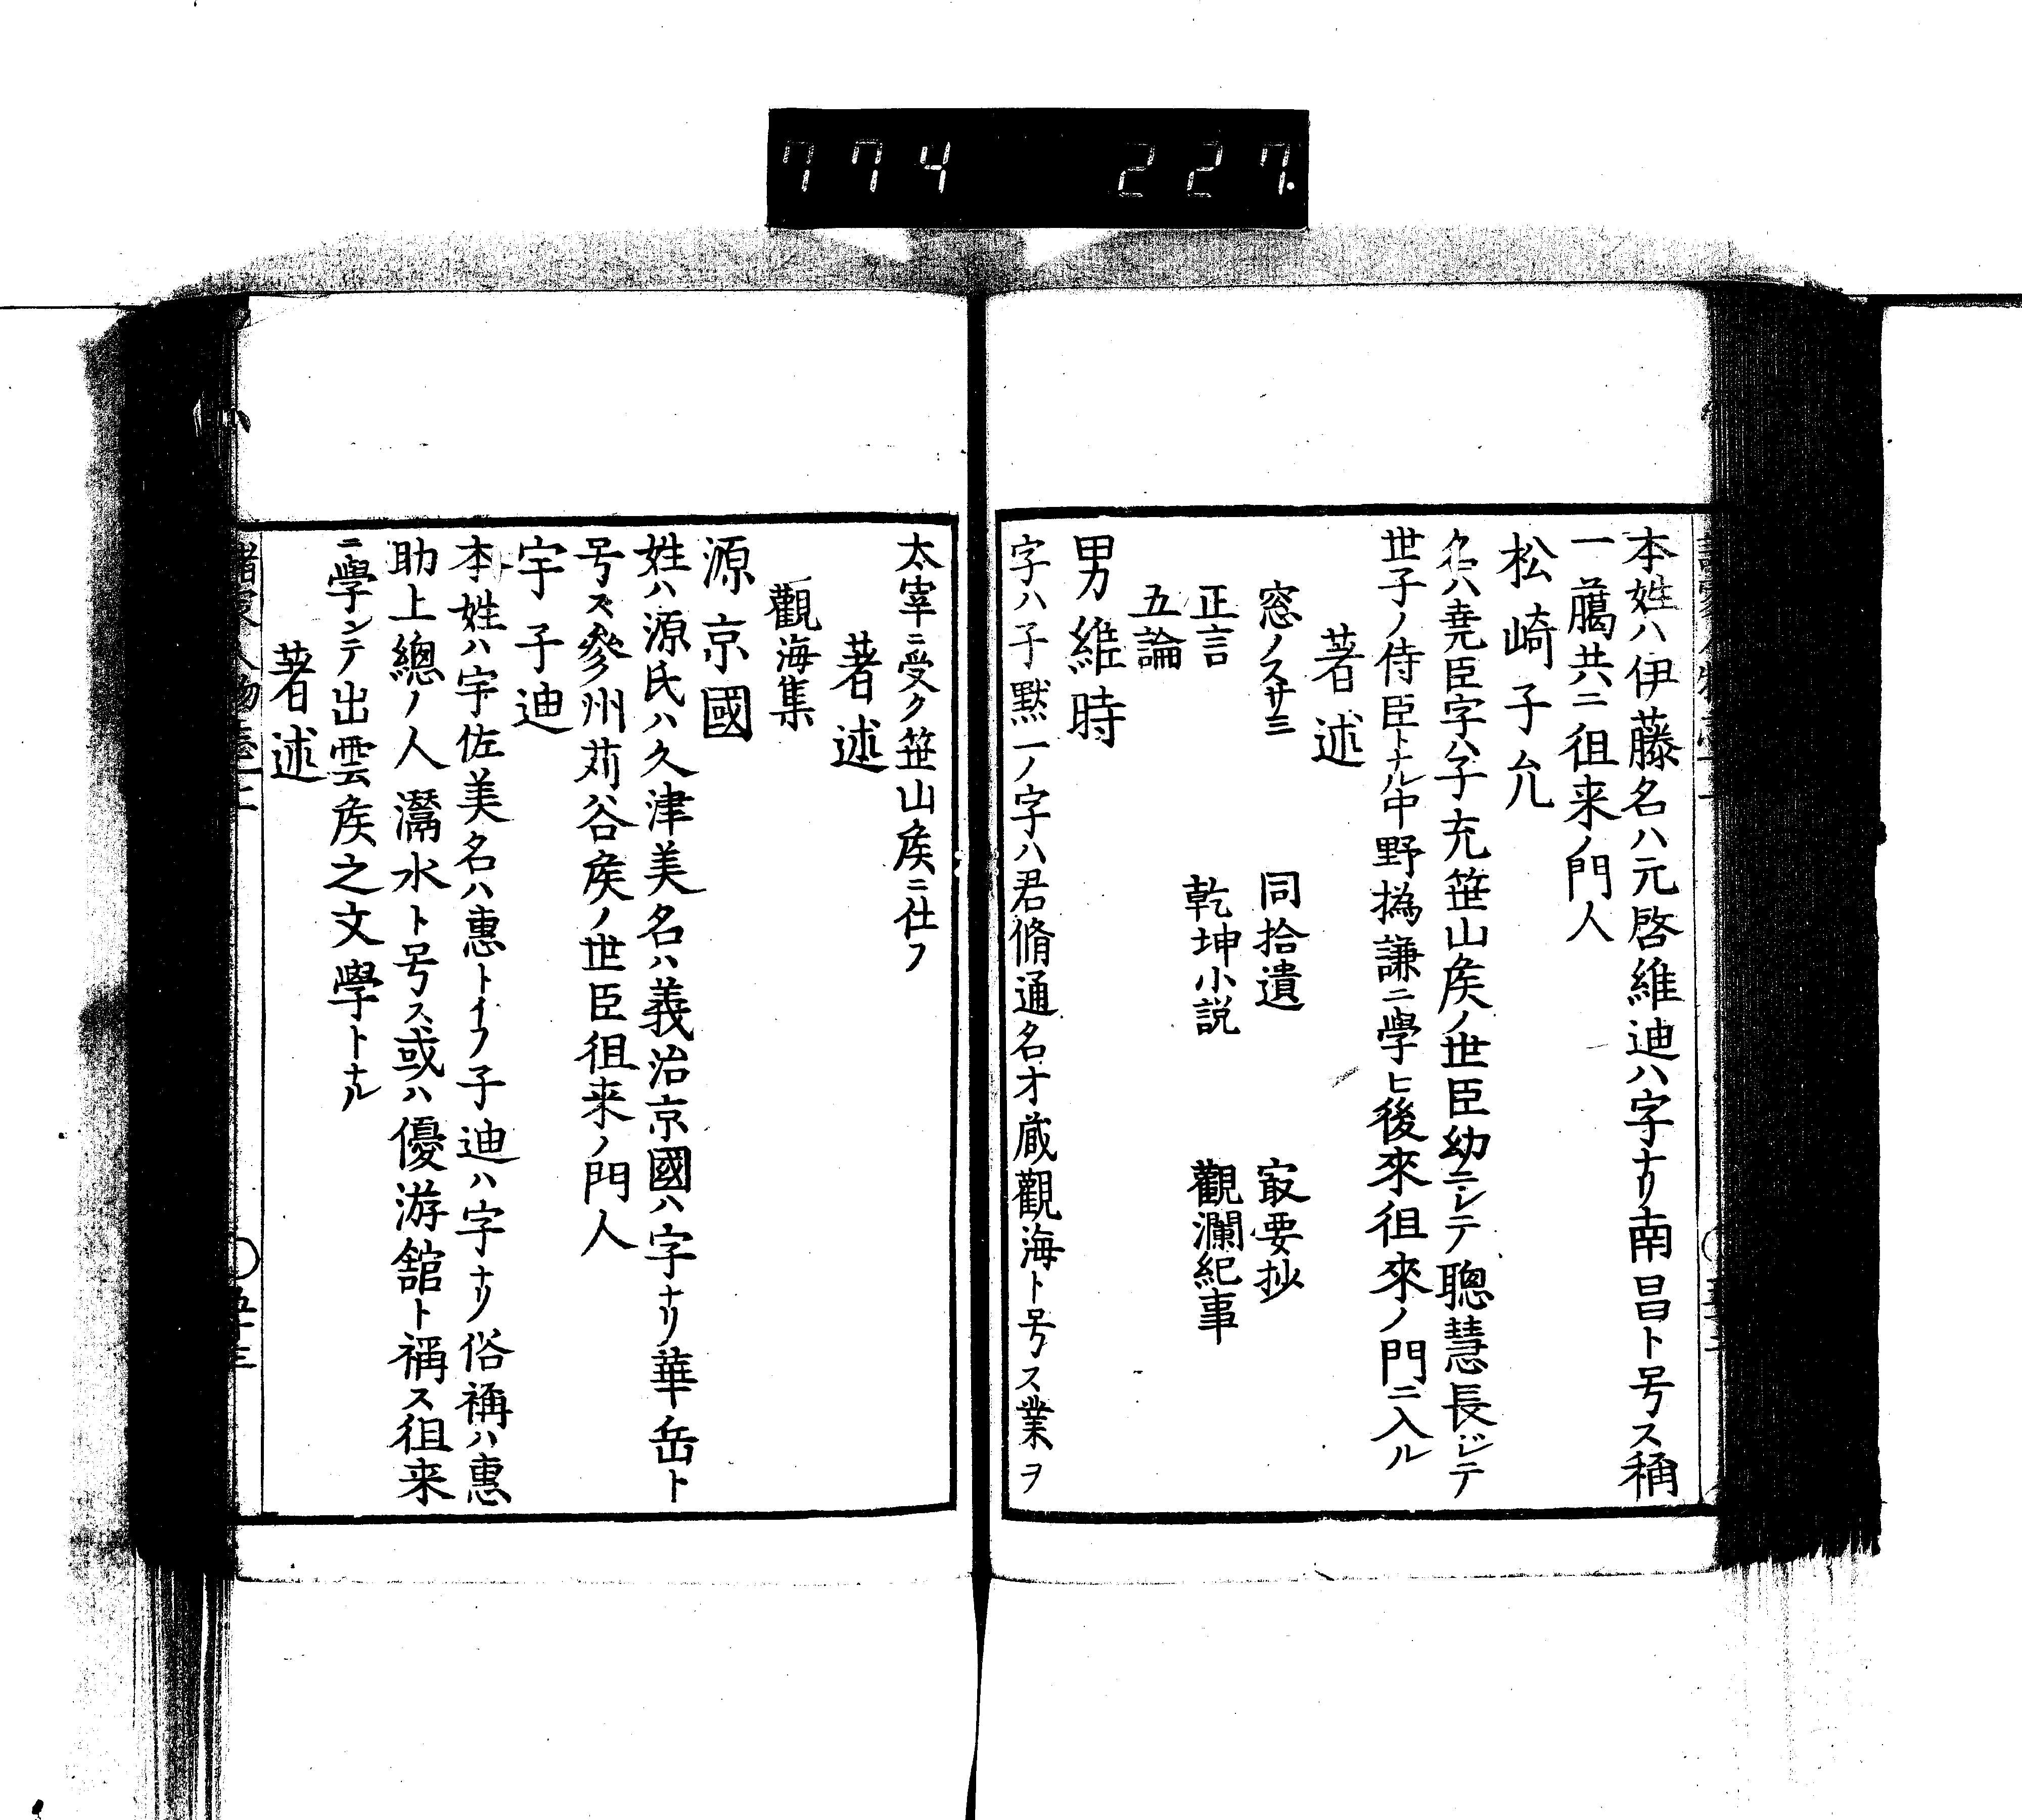 774 227.
本姓ハ伊藤名ハ元啓維迪ハ字ナリ南昌ト号ス稱
一﨟共ニ徂来ノ門人
松崎子允
名ハ堯臣字ハ子允笹山矦ノ世臣幼ニシテ聰慧長シテ
世子ノ侍臣トナル中野撝謙ニ學ヒ後來徂來ノ門ニ入ル
著述
窓ノスサミ 同拾遺 㝡要抄
正言 乾坤小説 觀瀾紀事
五論
男維時
字ハ子黙一ノ字ハ君脩通名才蔵觀海ト号ス業ヲ
太宰ニ受ク笹山矦ニ仕フ
著述
觀海集
源京國
姓ハ源氏ハ久津美名ハ義治京國ハ字ナリ華岳ト
号ス參州苅谷矦ノ世臣徂来ノ門人
宇子迪
本姓ハ宇佐美名ハ惠トイフ子迪ハ字ナリ俗稱ハ惠
助上總ノ人灊水ト号ス或ハ優游舘ト稱ス徂来
ニ學ンテ出雲矦之文學トナル
著述
五十三